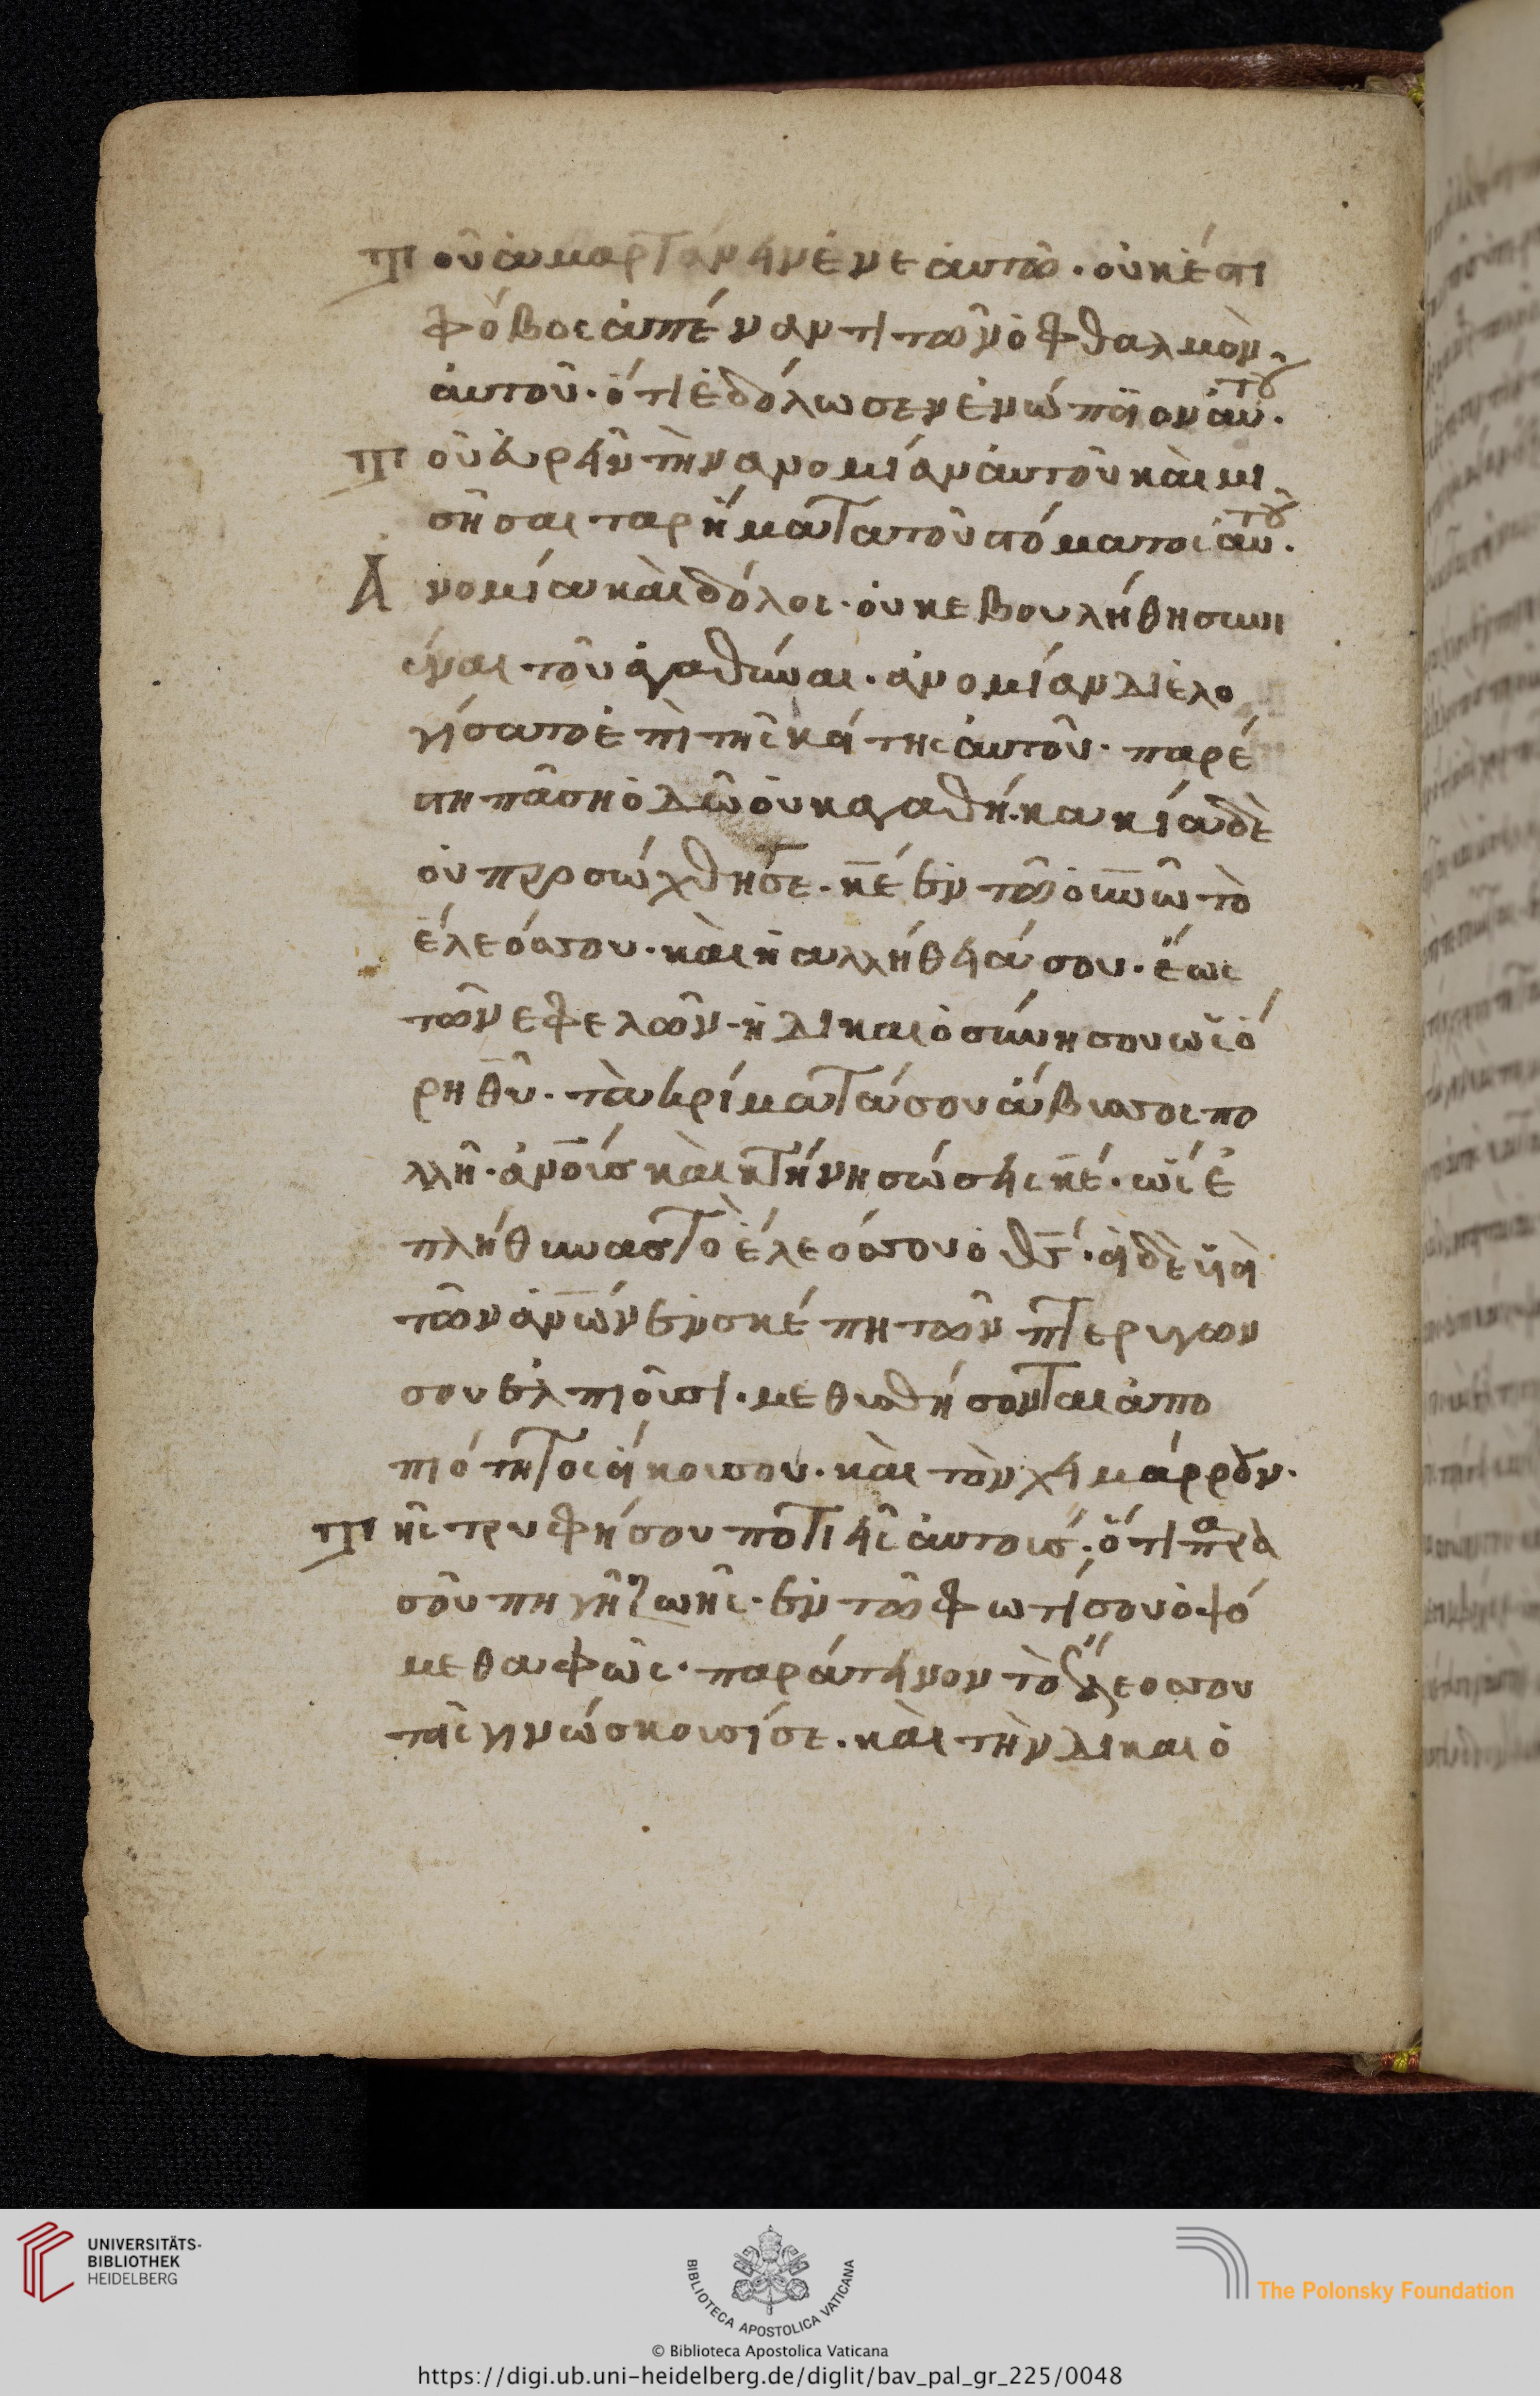 Τοῦ ἁμαρτάνειν ἐν ἑαυτῶ· οὐκ έστι
φόβος ἀπέναντι τῶν ὀφθαλμὸν
ἀυτοῦ· ὅτι ἐδόλωσεν ἐνώπϊον ἀυτοῦ·
Τοῦ ἑυρεῖν τὴν ανομίαν ἀυτοῦ καὶ μι
σῆσαι τα ρήματα τοῦ στόματος ἀυτοῦ·
Ἀνομία καὶ δόλος· ὀυκ εβουλήθη συνι
έναι τοῦ ἀγαθύναι· ἀνομίαν διελο
γίσατο ἐπὶ τῆς κοίτης ἀυτοῦ· παρέ
στη πᾶση ὁδῶ ὀυκ αγαθή· κακία δὲ
ὀυ προσώχθησε· κε ἐν τῶ ὀυνῶ τὸ
έλεός σου· καὶ ἡ αλλήθειά σου· ἕως
τῶν εφελῶν· ἡ δικαιὀσύνη σου ὡς ὄ
ρη θυ· τὰ κρίματά σου άβυσος πο
λλῆ· ἀνους καὶ κτήνη σώσεις κε· ὡς ἐ
πλήθυνας τὸ έλεός σου ὁ θς· οἱ δὲ υἱοὶ
τῶν ἀνων ἐν σκέπη τῶν πτερυγων
σου ἐλπιοῦσι· μεθυσθήσονται ἀπο
πιότητος οίκου σου· καὶ τὸν χειμάρρουν·
Τῆς τρυφής σου ποτιεῖς ἀυτούς· ὅτι παρὰ
σοῦ πηγὴ ζωῆς· ἐν τῶ φωτί σου ὀψό
μεθα φῶς· παράτεινον τὸ ἔλεος σου
τοῖς γινώσκουσί σε· καὶ τὴν δικαιὀ
UNIVERSITÄTS-
BIBLIOTHEK
HEIDELBERG
BIBLIOTHECA APOSTOLICA VATICANA
The Polonsky Foundation
© Biblioteca Apostolica Vaticana
https://digi.ub.uni-heidelberg.de/diglit/bav_pal_gr_225/0048